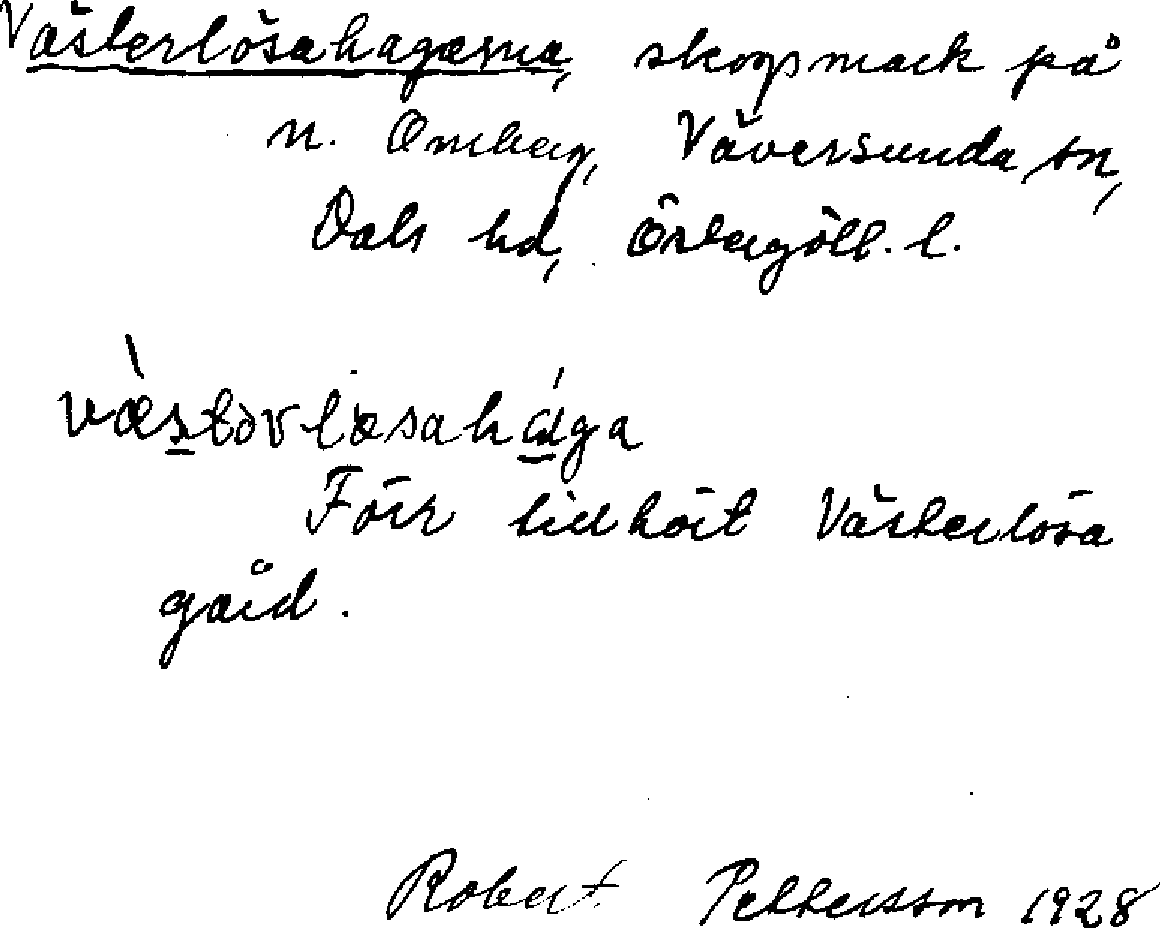 Västerlösahagarna, skogsmark på
n. Omberg, Väversunda sn,
Dals hd, Östergötl. l.
væstərlösahaga
Förr tillhört Västerlösa
gård.
Robert Pettersson 1928